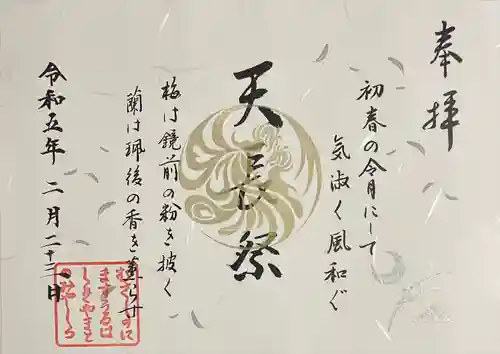 奉拝
初春の令月にして
気淑く風和ぐ
天長祭
梅は鏡前の粉を披く
蘭は珮後の香を薫らす
令和五年 二月二十三日